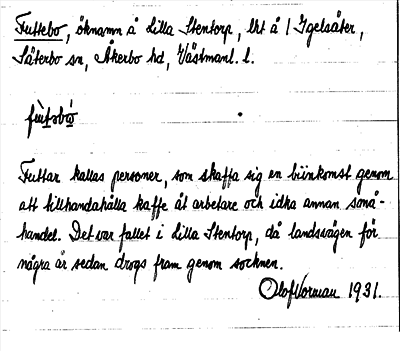 Futtebo, öknamn å Lilla Stentorp, lht å 1 Igelsäter,
Säterbo sn, Åkerbo hd, Västmanl. l.
Futtar kallas personer, som skaffa sig en biinkomst genom
att tillhandahålla kaffe åt arbetare och idka annan små-
handel. Det var fallet i Lilla Stentorp, då landsvägen för
några år sedan drogs fram genom socknen.
Olof Norman 1931.